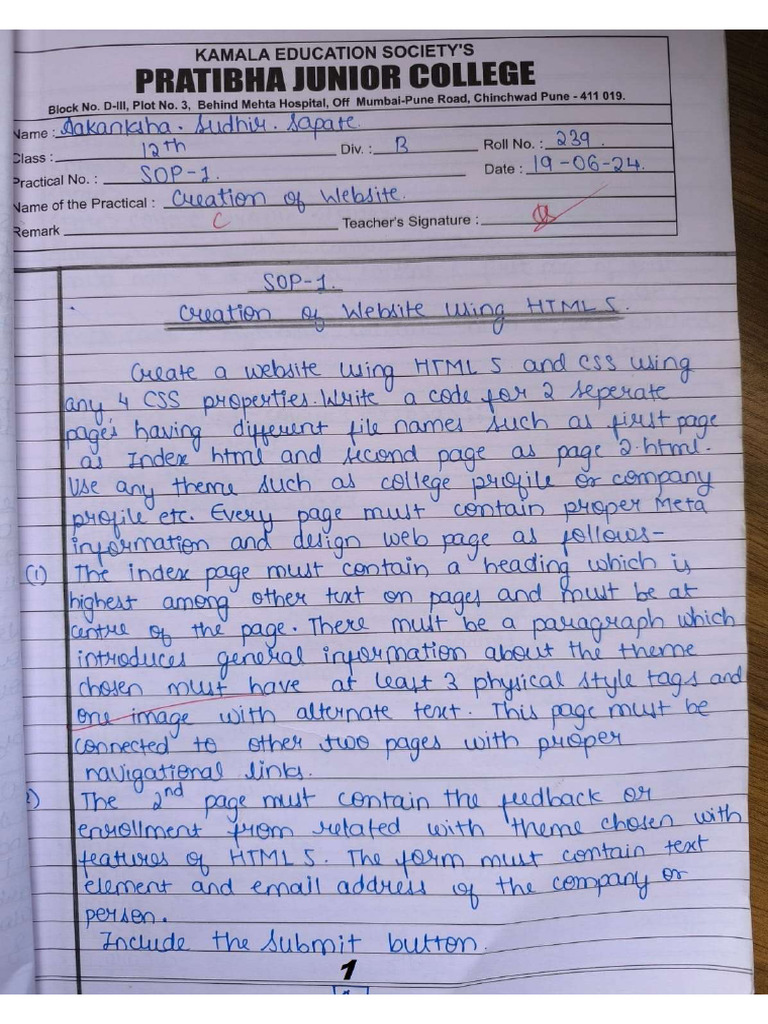 KAMALA EDUCATION SOCIETY'S
PRATIBHA JUNIOR COLLEGE
Block No. D-III, Plot No. 3, Behind Mehta Hospital, Off Mumbai-Pune Road, Chinchwad Pune - 411 019.
Name : Aakanksha. Sudhir. Sapate.
Class : 12th Div. : B Roll No. : 239
Practical No. : SOP-1. Date : 19-06-24.
Name of the Practical : Creation of Website.
Remark C Teacher's Signature :
SOP-1.
Creation of Website Using HTML 5.
Create a website using HTML 5 and CSS using
any 4 CSS properties. Write a code for 2 seperate
pages having different file names such as first page
as Index html and second page as page 2.html.
Use any theme such as college profile or company
profile etc. Every page must contain proper Meta
information and design web page as follows-
(1) The index page must contain a heading which is
highest among other text on pages and must be at
centre of the page. There must be a paragraph which
introduces general information about the theme
chosen must have at least 3 physical style tags and
one image with alternate text. This page must be
connected to other two pages with proper
navigational links.
2) The 2nd page must contain the feedback or
enrollment from related with theme chosen with
features of HTML 5. The form must contain text
element and email address of the company or
person.
Include the submit button.
1